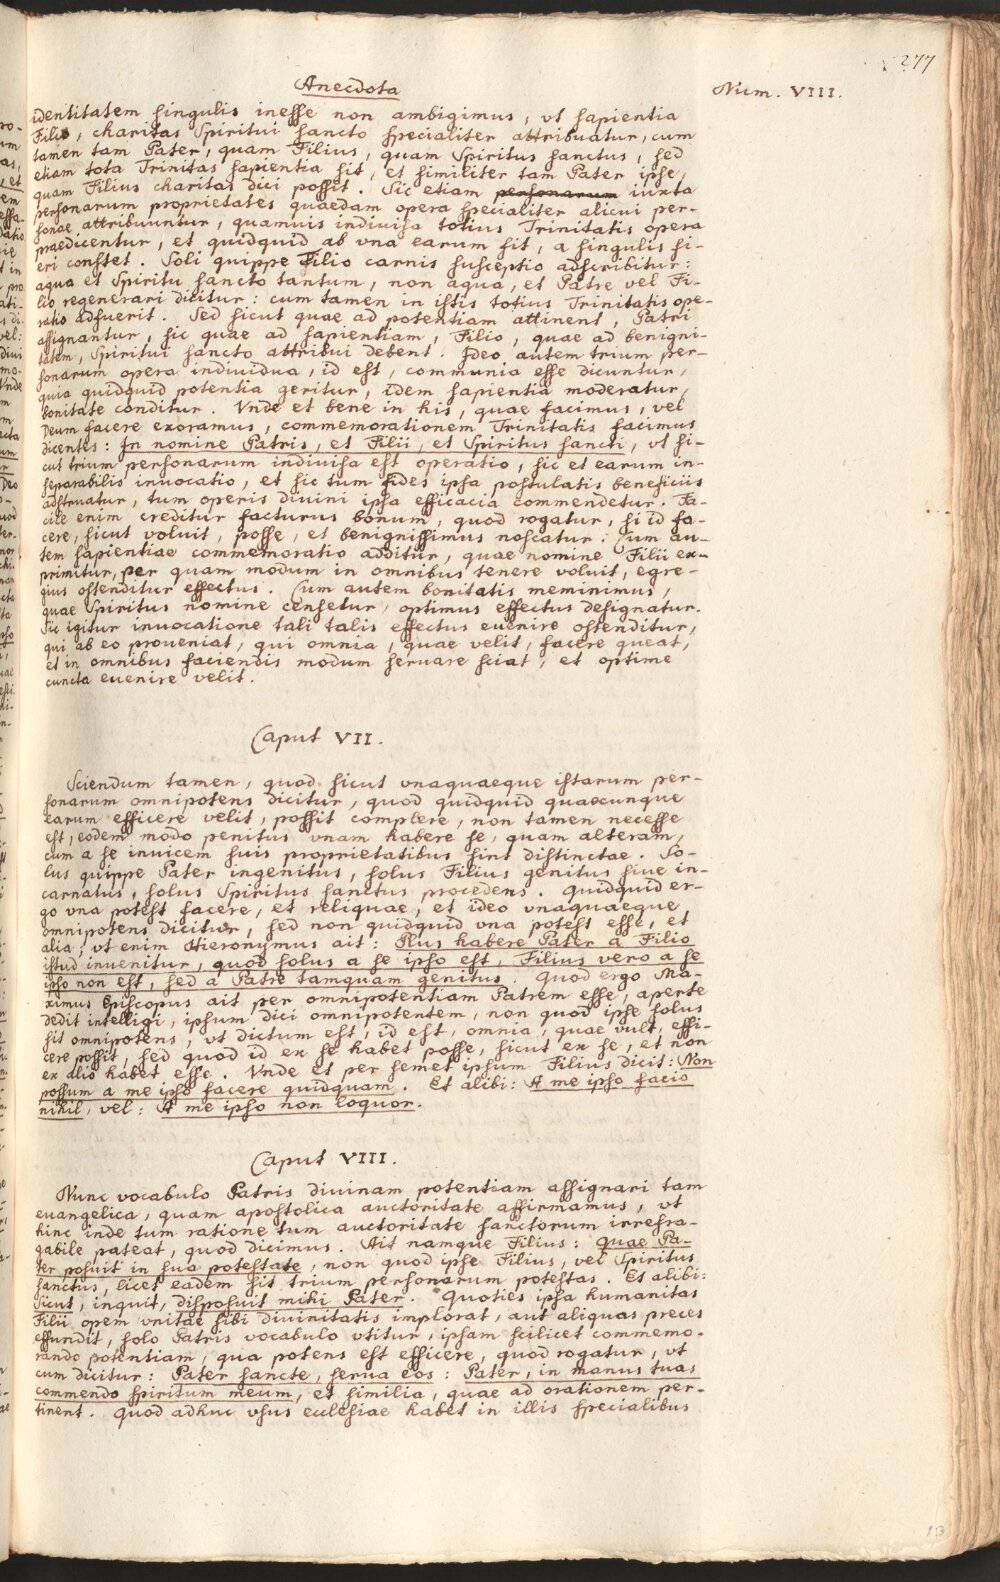 277
Anecdota
Num. VIII.
identitatem singulis inesse non ambigimus, vt sapientia
Filio, charitas Spiritui sancto specialiter attribuatur, cum
tamen tam Pater, quam Filius, quam Spiritus sanctus, sed
etiam tota Trinitas sapientia sit, et similiter tam Pater ipse,
quam Filius charitas dici possit. Sic etiam personarum iuxta
personarum proprietates quaedam opera specialiter alicui per-
sonae attribuuntur, quamuis indiuisa totius Trinitatis opera
praedicentur, et quidquid ab vna earum fit, a singulis fi-
eri constet. Soli quippe Filio carnis susceptio adscribitur:
aqua et Spiritu sancto tantum, non aqua, et Patre vel Fi-
lio regenerari dicitur: cum tamen in istis totius Trinitatis ope-
ratio adfuerit. Sed sicut quae ad potentiam attinent, Patri
assignantur, sic quae ad sapientiam, Filio, quae ad benigni-
tatem, Spiritui sancto attribui debent. Ideo autem trium per-
sonarum opera indiuidua, id est, communia esse dicuntur,
quia quidquid potentia geritur, idem sapientia moderatur,
bonitate conditur. Vnde et bene in his, quae facimus, vel
Deum facere exoramus, commemorationem Trinitatis facimus
dicentes: In nomine Patris, et Filii, et Spiritus sancti, vt si-
cut trium personarum indiuisa est operatio, sic et earum in-
separabilis inuocatio, et sic tum fides ipsa postulatis beneficiis
adstruatur, tum operis diuini ipsa efficacia commendetur. Fa-
cile enim creditur facturus bonum, quod rogatur, si id fa-
cere, sicut voluit, posse, et benignissimus noscatur. Cum au-
tem sapientiae commemoratio additur, quae nomine Filii ex-
primitur, per quam modum in omnibus tenere voluit, egre-
gius ostenditur effectus. Cum autem bonitatis meminimus,
quae Spiritus nomine censetur, optimus effectus designatur.
Sic igitur inuocatione tali talis effectus euenire ostenditur,
qui ab eo proueniat, qui omnia, quae velit, facere queat,
et in omnibus faciendis modum seruare sciat, et optime
cuncta euenire velit.
Caput VII.
Sciendum tamen, quod sicut vnaquaeque istarum per-
sonarum omnipotens dicitur, quod quidquid quaecunque
earum efficere velit, possit complere, non tamen necesse
est, eodem modo penitus vnam habere se, quam alteram,
cum a se inuicem suis proprietatibus sint distinctae. So-
lus quippe Pater ingenitus, solus Filius genitus siue in-
carnatus, solus Spiritus sanctus procedens. Quidquid er-
go vna potest facere, et reliquae, et ideo vnaquaeque
omnipotens dicitur, sed non quidquid vna potest esse, et
alia; vt enim Hieronymus ait: Plus habere Pater a Filio
istud inuenitur, quod solus a se ipso est, Filius vero a se
ipso non est, sed a Patre tamquam genitus. Quod ergo Ma-
ximus Episcopus ait per omnipotentiam Patrem esse, aperte
dedit intelligi, ipsum dici omnipotentem, non quod ipse solus
sit omnipotens, vt dictum est, id est, omnia, quae vult, effi-
cere possit, sed quod id ex se habet posse, sicut ex se, et non
ex alio habet esse. Vnde et per semet ipsum Filius dicit: Non
possum a me ipso facere quidquam. Et alibi: A me ipso facio
nihil, vel: A me ipso non loquor.
Caput VIII.
Nunc vocabulo Patris diuinam potentiam assignari tam
euangelica, quam apostolica auctoritate affirmamus, vt
hinc inde tum ratione tum auctoritate sanctorum irrefra-
gabile pateat, quod dicimus. Ait namque Filius: Quae Pa-
ter posuit in sua potestate, non quod ipse Filius, vel Spiritus
sanctus, licet eadem sit trium personarum potestas. Et alibi:
Sicut, inquit, disposuit mihi Pater. Quoties ipsa humanitas
Filii opem vnitae sibi diuinitatis implorat, aut aliquas preces
effundit, solo Patris vocabulo vtitur, ipsam scilicet commemo-
rando potentiam, qua potens est efficere, quod rogatur, vt
cum dicitur: Pater sancte, serua eos: Pater, in manus tuas
commendo spiritum meum, et similia, quae ad orationem per-
tinent. Quod adhuc vsus ecclesiae habet in illis specialibus